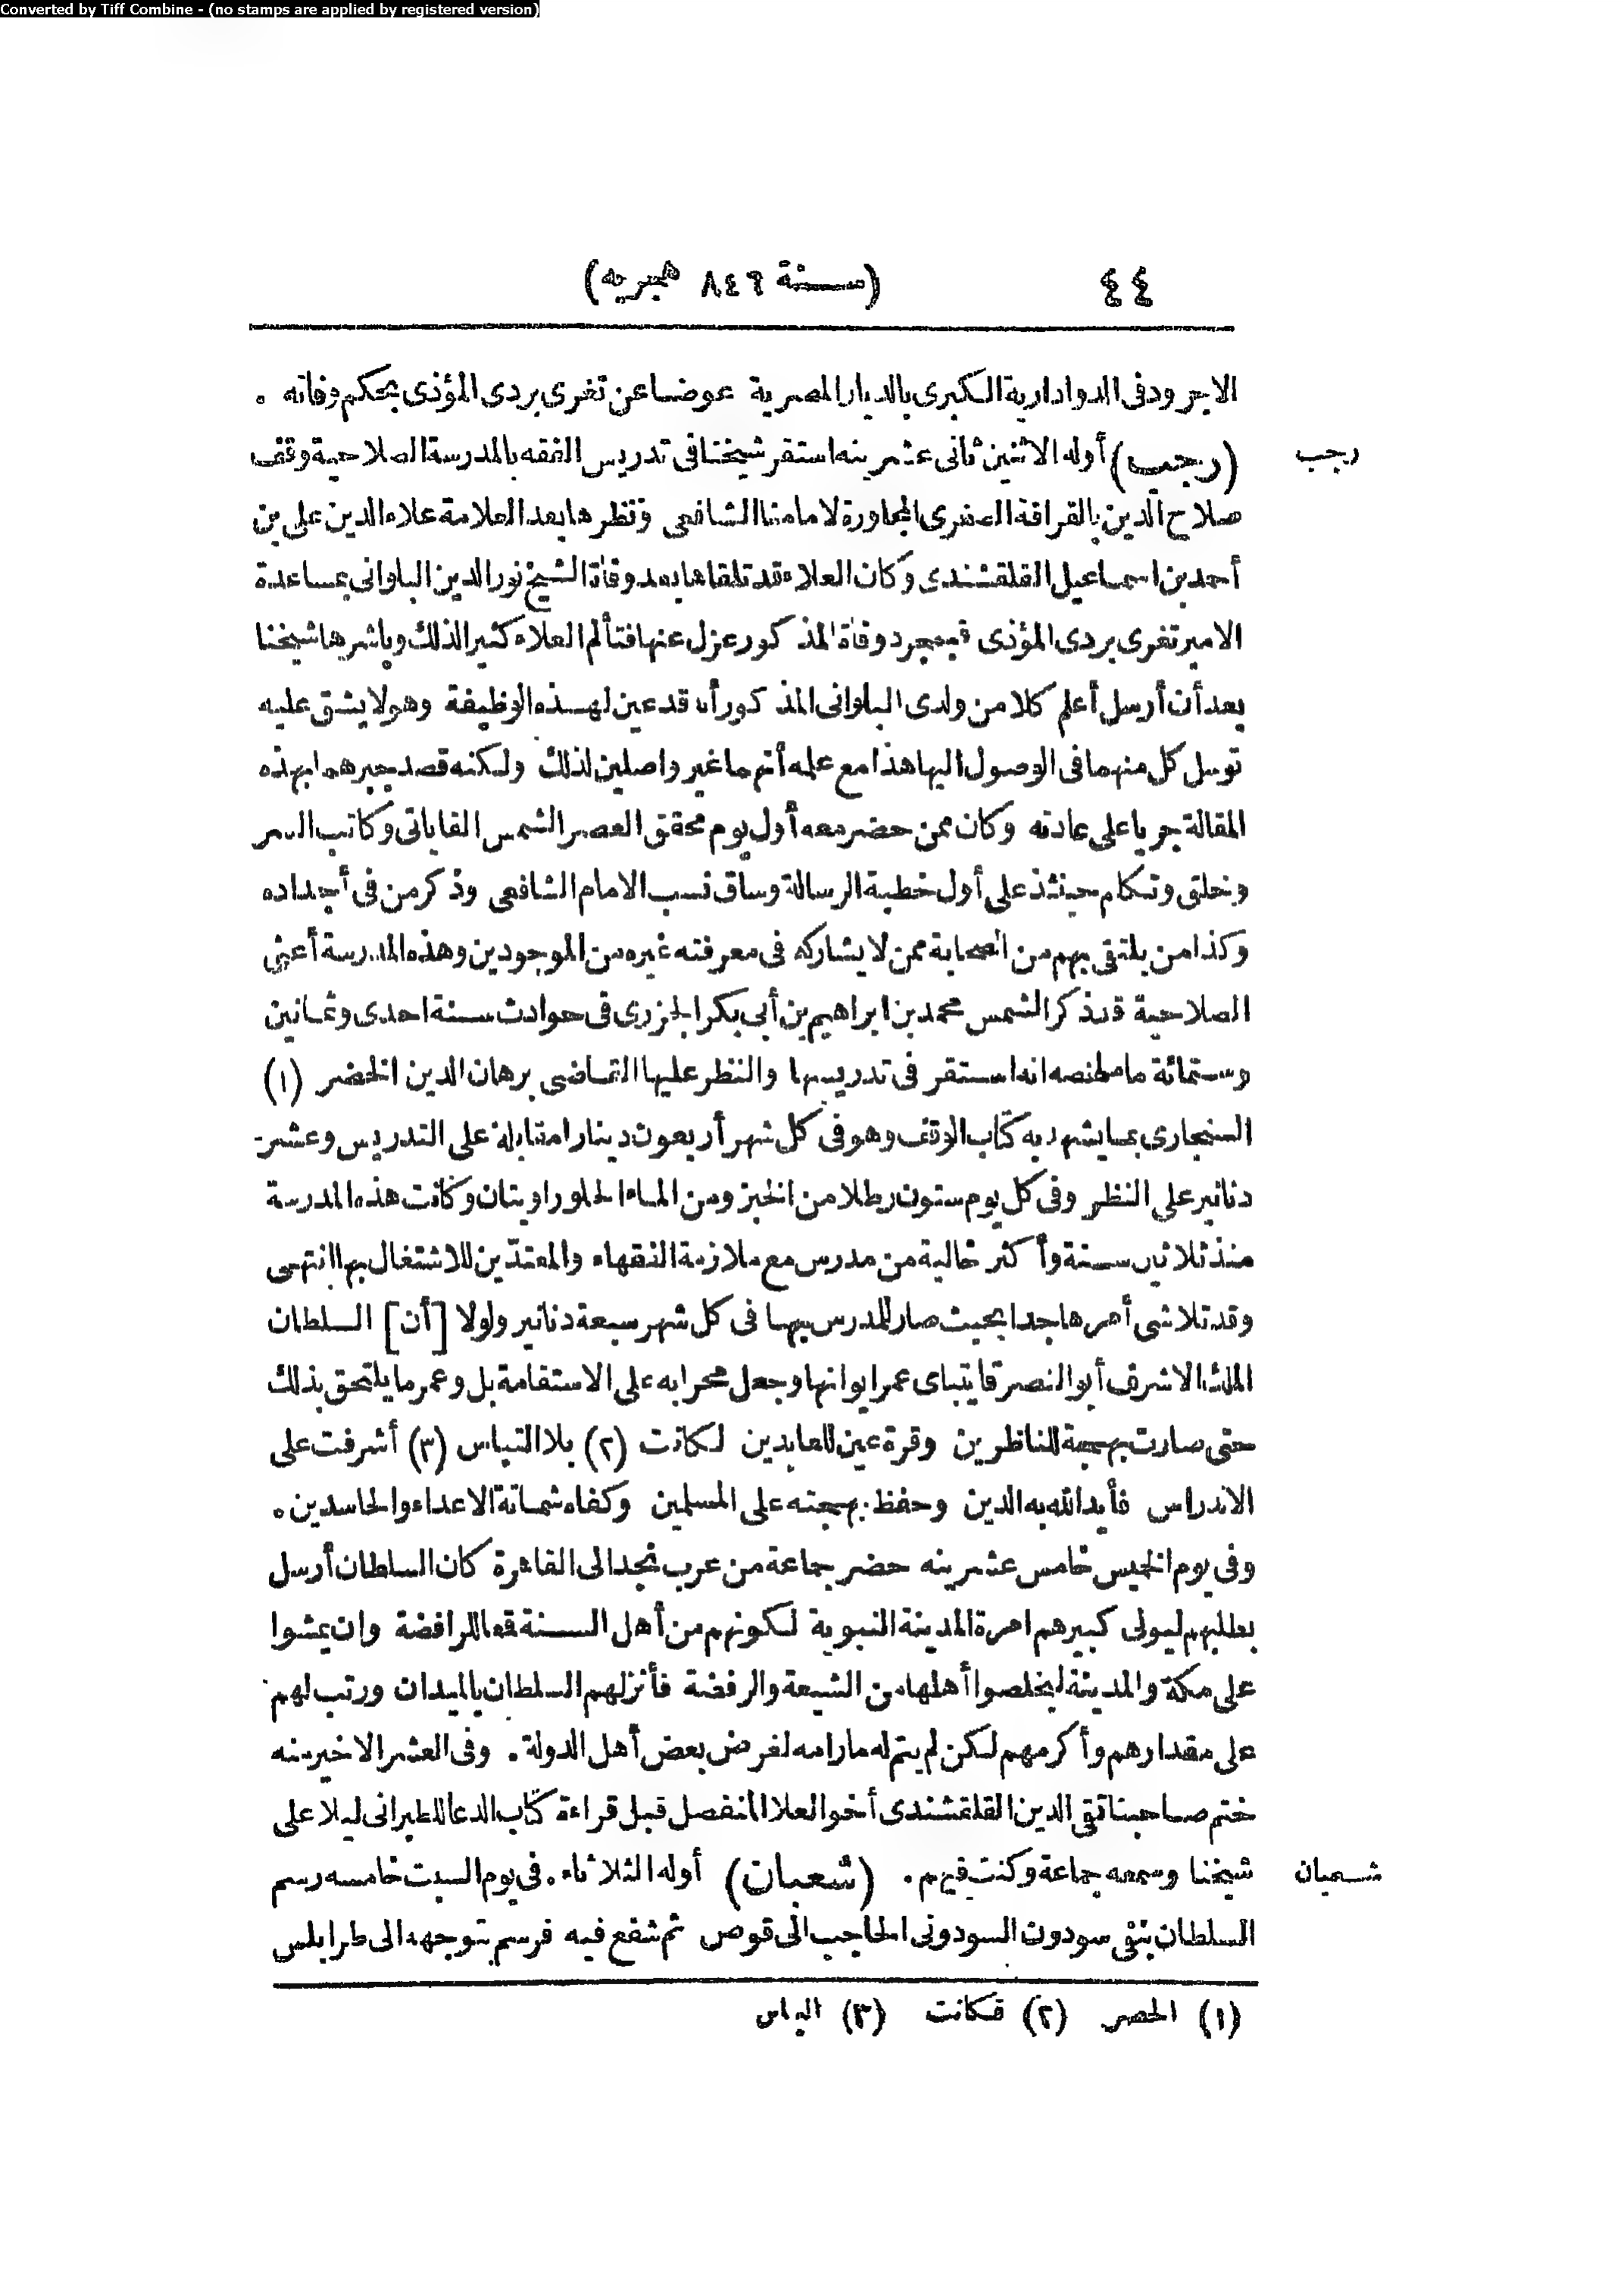 Converted by Tiff Combine - (no stamps are applied by registered version)
٤٤ (سنة ٨٤٦ هجريه)
الاجرود فى الدوادارية الكبرى بالديار المصرية عوضا عن تغرى بردى المؤذى بحكم وفاته .
رجب
(رجب) أوله الاثنين ثانى عشرينه استقر شيخنا فى تدريس الفقه بالمدرسة الصلاحية وقف
صلاح الدين بالقرافة الصغرى المجاورة لامامنا الشافعى ونظرها بعد العلامة علاء الدين على بن
أحمد بن اسماعيل القلقشندى وكان العلاء قد تلقاها بعد وفاة الشيخ نور الدين البلوانى بمساعدة
الامير تغرى بردى المؤذى فبمجرد وفاة المذكور عزل عنها فتألم العلاء كثيرا لذلك وباشرها شيخنا
بعد أن أرسل أعلم كلا من ولدى البلوانى المذكور أنه قد عين لهذه الوظيفة وهو لا يشق عليه
توسل كل منهما فى الوصول اليها هذا مع علمه أنهما غير واصلين لذلك ولكنه قصد جبرهما بهذه
المقالة جريا على عادته وكان ممن حضر معه أول يوم محقق العصر الشمس القاياتى وكاتب السر
وخلق وتكلم حينئذ على أول خطبة الرسالة وساق نسب الامام الشافعى وذكر من فى أجداده
وكذا من يلتقى بهم من الصحابة ممن لا يشاركه فى معرفته غيره من الموجودين وهذه المدرسة أعنى
الصلاحية قد ذكر الشمس محمد بن ابراهيم بن أبى بكر الجزرى فى حوادث سنة احدى وثمانين
وستمائة ما ملخصه انه استقر فى تدريسها والنظر عليها القاضى برهان الدين الخضر (١)
السنجارى بما يشهد به كتاب الوقف وهو فى كل شهر أربعون دينارا مقابلة على التدريس وعشرة
دنانير على النظر وفى كل يوم ستون رطلا من الخبز ومن الماء الحلو راويتان وكانت هذه المدرسة
منذ ثلاثين سنة وأكثر خالية من مدرس مع ملازمة الفقهاء والمعتدّين للاشتغال بها انتهى
وقد تلاشى أمرها جدا بحيث صار للمدرس بها فى كل شهر سبعة دنانير ولولا [أن] السلطان
الملك الاشرف أبو النصر قايتباى عمر ايوانها وجعل محرابه على الاستقامة بل وعمر ما يلتحق بذلك
حتى صارت بهجة للناظرين وقرة عين للعابدين لكانت (٢) بلا التباس (٣) أشرفت على
الاندراس فأيد الله به الدين وحفظ بهجته على المسلمين وكفاه شماتة الاعداء والحاسدين .
وفى يوم الخميس خامس عشرينه حضر جماعة من عرب نجد الى القاهرة كان السلطان أرسل
بطلبهم ليولى كبيرهم امرة المدينة النبوية لكونهم من أهل السنة قمعا للرافضة وان يمشوا
على مكة والمدينة ليخلصوا أهلها من الشيعة والرفضة فأنزلهم السلطان بالميدان ورتب لهم
على مقدارهم وأكرمهم لكن لم يتم له ما رامه لغرض بعض أهل الدولة . وفى العشر الاخير منه
ختم صاحبنا تقى الدين القلقشندى أخو العلا المنفصل قبل قراءة كتاب الدعا للطبرانى ليلا على
شيخنا وسمعه جماعة وكنت فيهم . (شعبان) أوله الثلاثاء . فى يوم السبت خامسه رسم
شعبان
السلطان بنفى سودون السودونى الحاجب الى قوص ثم شفع فيه فرسم بتوجهه الى طرابلس
(١) الحصر (٢) فكانت (٣) الياس